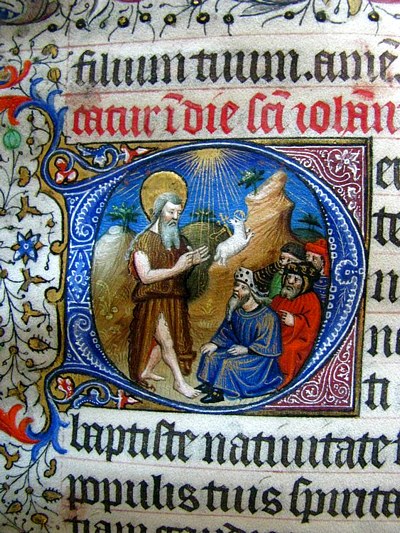 filium tuum. amē
catur ī die scī iohan
te
ne
ti
baptiste natiuitate
populis tuis spirita
tiam